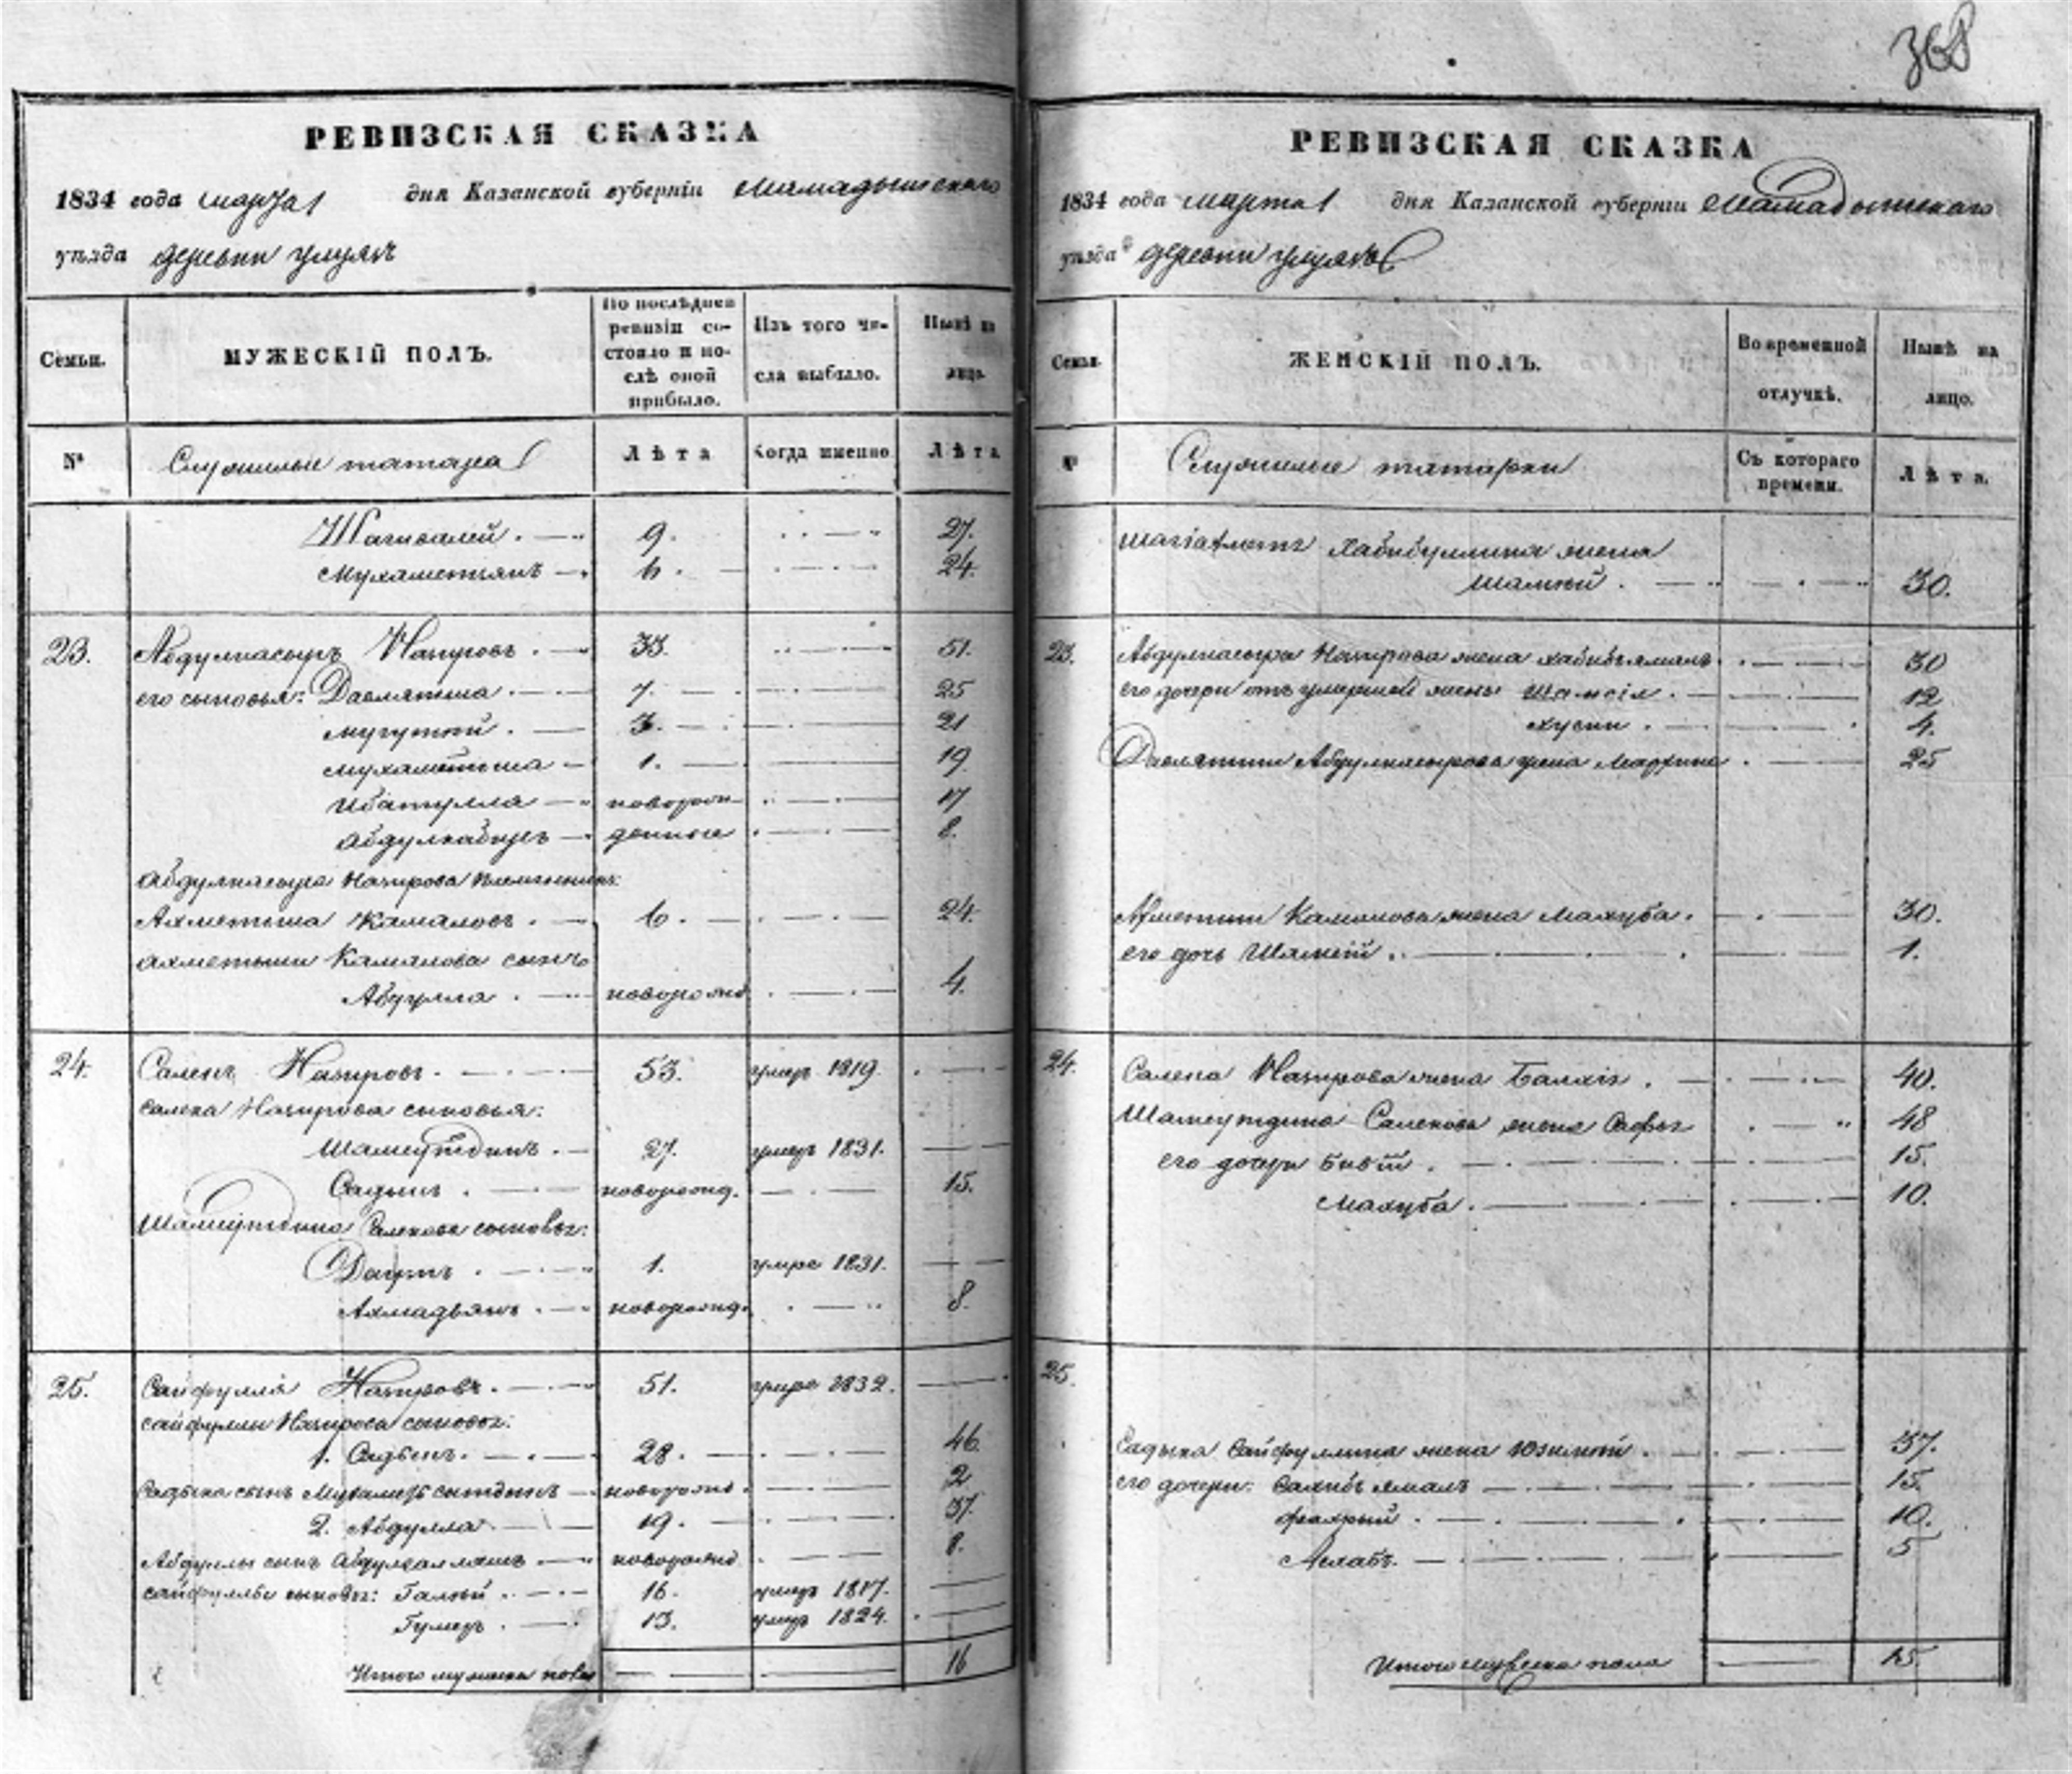 368
РЕВИЗСКАЯ СКАЗКА
1834 года марта 1 дня Казанской губерніи Мамадышскаго
уѣзда деревни
Семьи. МУЖЕСКІЙ ПОЛЪ. По послѣдней ревизіи состояло и послѣ оной прибыло. Изъ того числа выбыло. Нынѣ на лицо.
№ Служилые татара Лѣта Когда именно Лѣта
Шагивалей 9. 27.
Мухаметзянъ 6. 24.
23. Абдулнасыръ Назировъ 33. 51.
его сыновья: Давлятша 7. 25
3. 21
Мухаметша 1. 19.
Ибатулла новорож- 17
Абдулкабиръ денные 8.
Абдулнасыра Назирова племянникъ:
Ахметша Камаловъ 6. 24.
Ахметши Камалова сынъ
Абдулла новорожд 4.
24. Салекъ Назировъ 53. умеръ 1819.
Салека Назирова сыновья:
Шамсутдинъ 27. умеръ 1831.
Садыкъ новорожд. 15.
Шамсутдина Салекова сыновья:
Даутъ 1. умре 1831.
Ахмадьянъ новорожд. 8.
25. Сайфулла Назировъ 51. умре 1832.
Сайфуллы Назирова сыновья:
1. Садыкъ 28. 46.
Садыка сынъ новорожд. 2
2. Абдулла 19. 37.
Абдуллы сынъ новорожд 8.
сайфуллы сыновья: 16. умеръ 1817.
Гумеръ 13. умеръ 1824.
Итого мужеска пола 16
РЕВИЗСКАЯ СКАЗКА
1834 года марта 1 дня Казанской губерніи Мамадышскаго
уѣзда деревни
Семьи. ЖЕНСКІЙ ПОЛЪ. Во временной отлучкѣ. Нынѣ на лицо.
№ Служилые татарки Съ котораго времени. Лѣта.
Хабибуллина жена
30.
23. Абдулнасыра Назирова жена Хабибъямалъ 30
его дочери отъ умершей жены Шамсія 12
Хусни 4.
Давлятши Абдулнасырова жена 25
Ахметши Камалова жена Махуба 30.
его дочь 1.
24. Салека Назирова жена 40.
Шамсутдина Салекова жена 48
его дочери 15.
Махуба 10.
25.
Садыка Сайфуллина жена 37.
его дочери: Сахибъямалъ 15.
10.
5
Итого женска пола 15